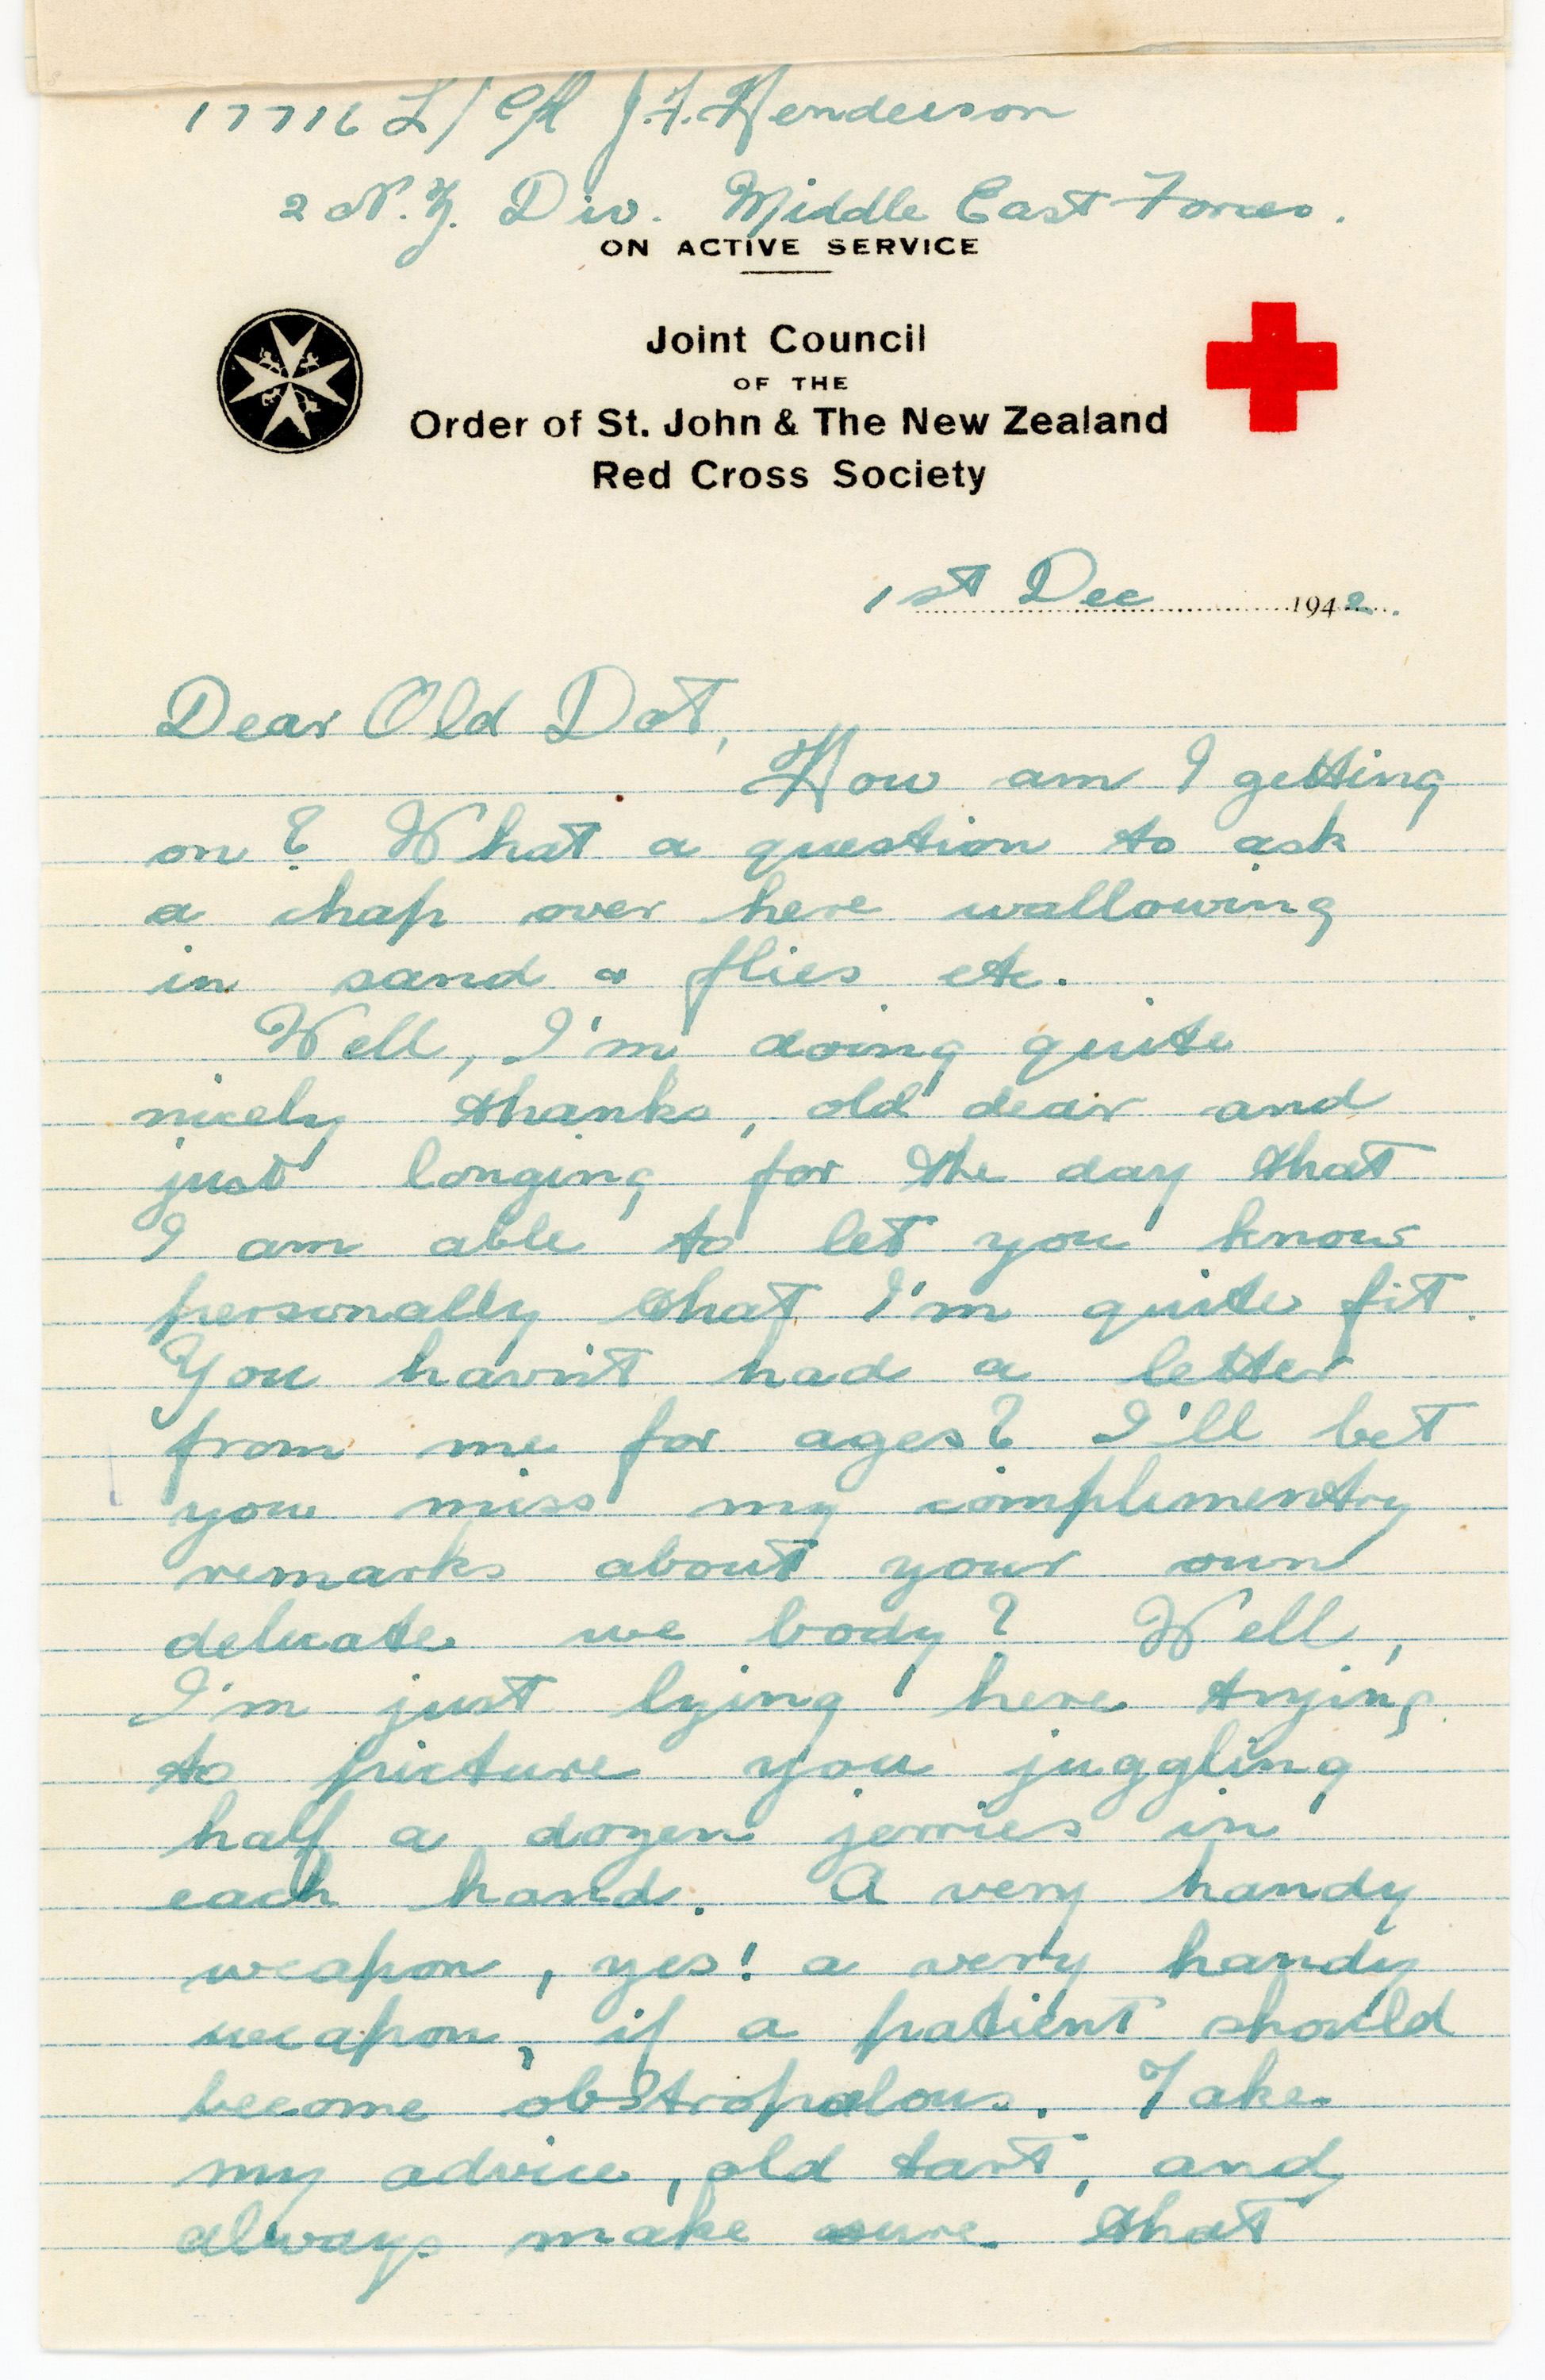 17716 L/Cpl J.F. Henderson
2 N.Z. Div. Middle East Forces.
ON ACTIVE SERVICE
Joint Council
OF THE
Order of St. John & The New Zealand
Red Cross Society
1st Dec 1942.
Dear Old Dot,
How am I getting
on? What a question to ask
a chap over here wallowing
in sand & flies etc.
Well, I'm doing quite
nicely thanks, old dear and
just longing for the day that
I am able to let you know
personally that I'm quite fit.
You havn't had a letter
from me for ages? I'll bet
you miss my complimentry
remarks about your own
delicate wee body? Well,
I'm just lying here trying
to picture you juggling
half a dozen jerries in
each hand. A very handy
weapon, yes! a very handy
weapon, if a patient should
become obstropolous. Take
my advice, old tart, and
always make sure that